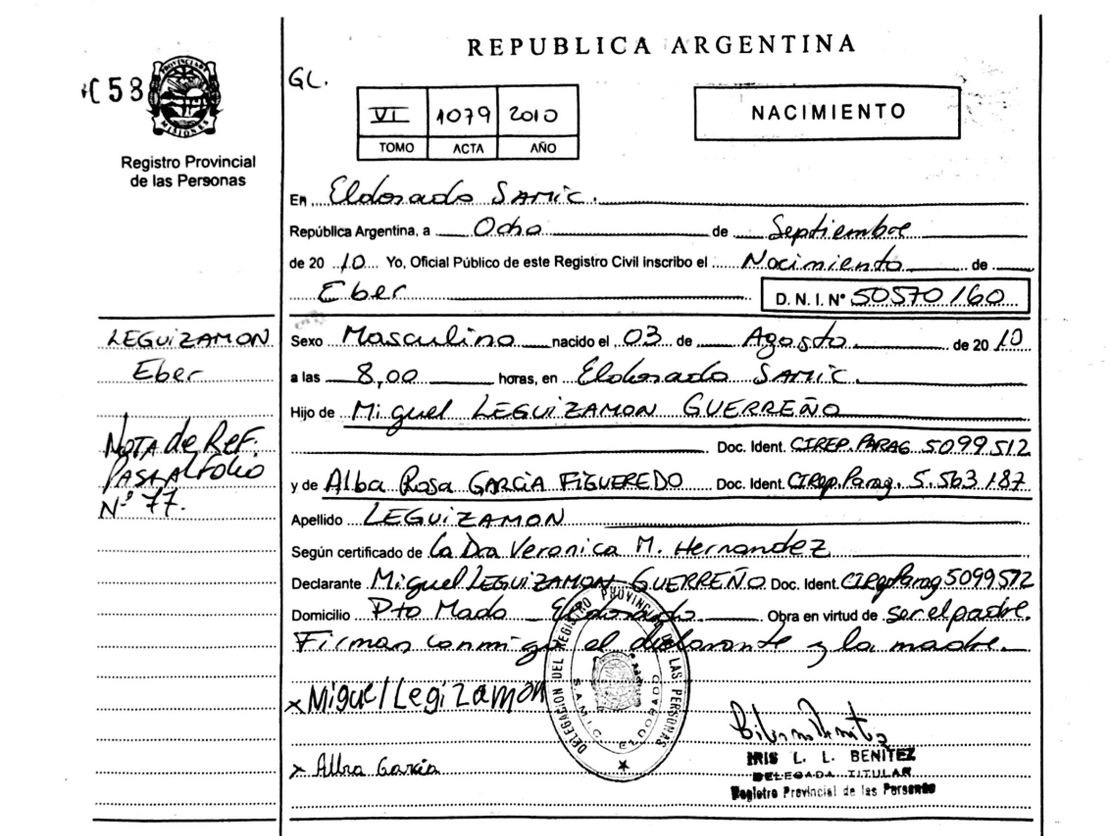 REPUBLICA ARGENTINA
C 58
PROVINCIA DE MISIONES
Registro Provincial
de las Personas
GL.
VI 1079 2010
TOMO ACTA AÑO
NACIMIENTO
En Eldorado SAMIC.
República Argentina, a Ocho de Septiembre
de 20 10 Yo, Oficial Público de este Registro Civil inscribo el Nacimiento de
Eber D.N.I. Nº 50570160
LEGUIZAMON
Eber
NOTA de Ref.
PASA AL FOLIO
Nº 77.
Sexo Masculino nacido el 03 de Agosto de 20 10
a las 8,00 horas, en Eldorado SAMIC.
Hijo de Miguel LEGUIZAMON GUERREÑO
Doc. Ident. CIREP. PARAG 5099512
y de Alba Rosa GARCIA FIGUEREDO Doc. Ident. CIRep. Parag. 5.563.187
Apellido LEGUIZAMON
Según certificado de La Dra Veronica M. Hernandez
Declarante Miguel LEGUIZAMON GUERREÑO Doc. Ident. CIRep Parag 5099512
Domicilio Pto Mado Eldorado Obra en virtud de ser el padre.
Firman conmigo el declarante y la madre.
x Miguel Legizamon
x Alba García
DELEGACION DEL REGISTRO PROVINCIAL DE LAS PERSONAS
S.A.M.I.C. ELDORADO
IRIS L. L. BENITEZ
DELEGADA TITULAR
Registro Provincial de las Personas